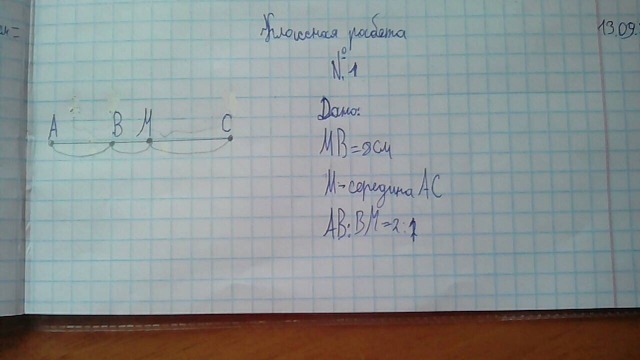 Классная работа
13.09.
№1
A B M C
Дано:
MB=8см
M-середина AC
AB:BM=2:1